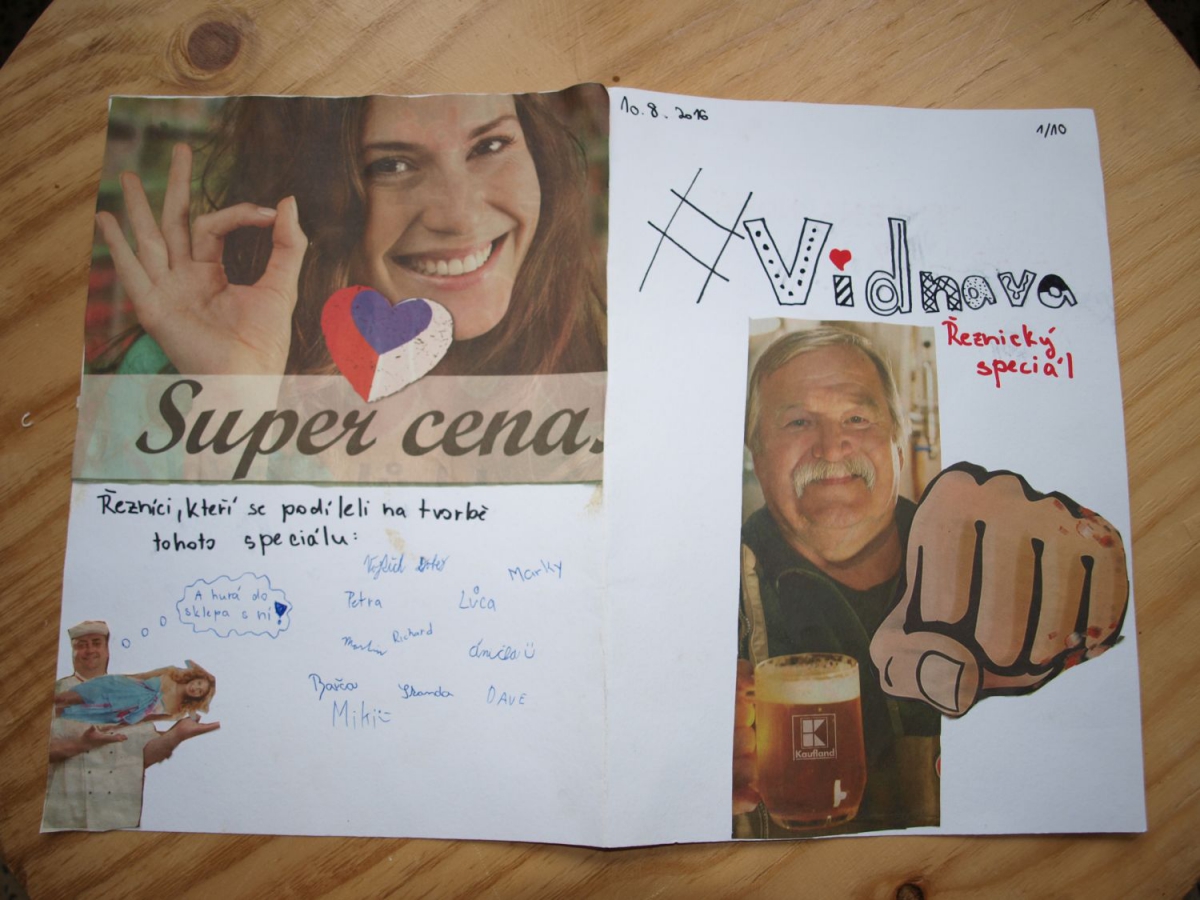 Super cena.
Řezníci, kteří se podíleli na tvorbě
tohoto speciálu:
A hurá do
sklepa s ní!
Marky
Petra
Lůca
Richard
Barča
Standa
DAVE
Miki
10.8.2016
1/10
#Vidnava
Řeznický
speciál
K
Kaufland